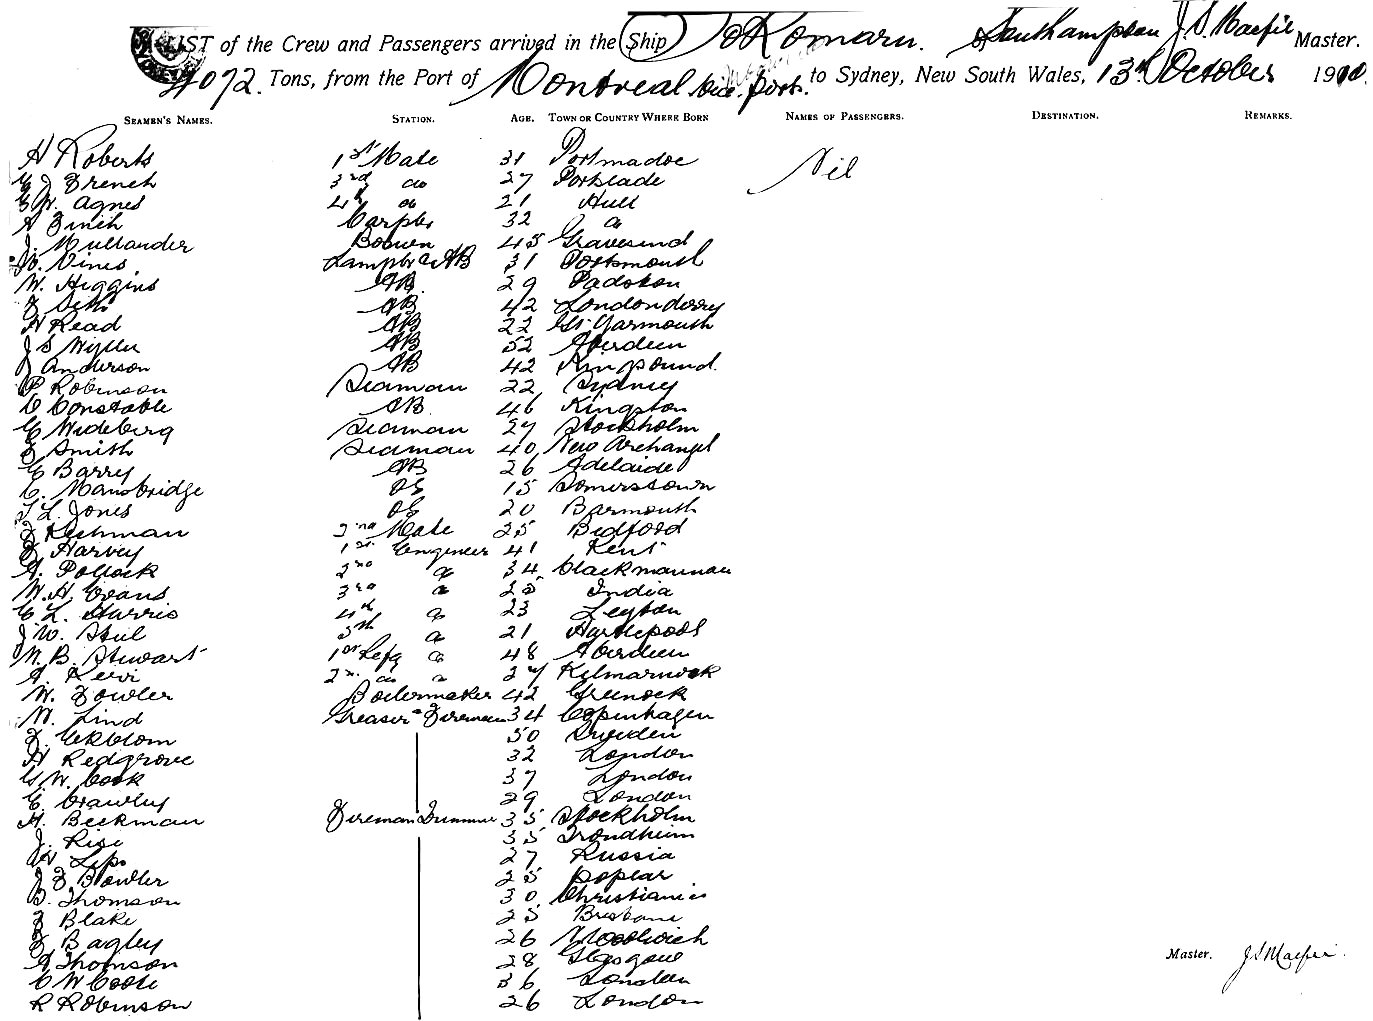 LIST of the Crew and Passengers arrived in the Ship Tokomaru. Southampton J.S. Macfie Master.
4072. Tons, from the Port of Montreal via ports. to Sydney, New South Wales, 13th October 1910.
SEAMEN'S NAMES. STATION. AGE. TOWN OR COUNTRY WHERE BORN NAMES OF PASSENGERS. DESTINATION. REMARKS.
H Roberts 1st Mate 31 Portmadoc Nil
J French 3rd do 27 Portslade
W. Agnes 4th do 21 Hull
Finch Carptr 32 do
J. Mullander Bosun 45 Gravesend
W. Vines Lamptr & AB 31 Portsmouth
W. Higgins AB 29 Padstow
AB 42 Londonderry
H Read AB 22 Gt Yarmouth
J S Wyllie AB 52 Aberdeen
J Anderson AB 42
P Robinson Seaman 22 Sydney
C Constable AB. 46 Kingston
E Wideberg Seaman 27 Stockholm
J Smith Seaman 40 New Archangel
E Barry AB 26 Adelaide
C. Mansbridge OS 15 Somerstown
T L. Jones OS 20 Barmouth
2nd Mate 25 Bedford
F Harvey 1st Engineer 41 Kent
A. Pollock 2nd do 34 Clackmannan
W. H. Evans 3rd do 25 India
E L. Harris 4th do 23 Leyton
J W. Steel 5th do 21 Hartlepool
W. B. Stewart 1st Refg do 48 Aberdeen
2nd do do 27 Kilmarnock
W. Fowler Boilermaker 42 Greenock
W. Lind Greaser & Fireman 34 Copenhagen
F. Ekblom 50 Sweden
H Redgrove 32 London
G. W. Cook 37 London
E. Crawley 29 London
H. Beckman Fireman Trimmer 35 Stockholm
J. 35 Trondheim
27 Russia
J F Bowler 25 Poplar
D. Thomson 30 Christiania
F Blake 25 Brisbane
F Bagley 26 Woolwich
A Thomson 28 Glasgow
C W Coote 36 London
R Robinson 26 London
Master. J S Macfie.